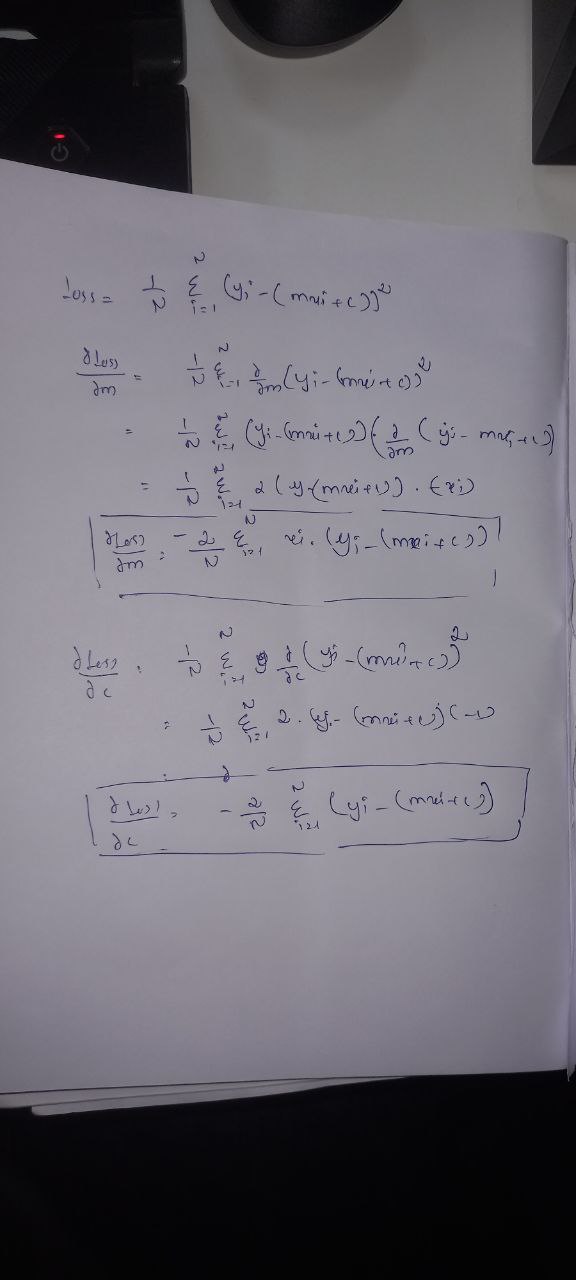 Loss = 1/N Σ_{i=1}^{N} (yi - (mxi + c))^2
∂Loss/∂m = 1/N Σ_{i=1}^{N} ∂/∂m (yi - (mxi + c))^2
= 1/N Σ_{i=1}^{N} (yi - (mxi + c)) (∂/∂m (yi - mxi + c)
= 1/N Σ_{i=1}^{N} 2 (y - (mxi + c)) . (-xi)
∂Loss/∂m = -2/N Σ_{i=1}^{N} xi . (yi - (mxi + c))
∂Loss/∂c = 1/N Σ_{i=1}^{N} ∂/∂c (yi - (mxi + c))^2
= 1/N Σ_{i=1}^{N} 2 . (yi - (mxi + c)) (-1)
∂Loss/∂c = -2/N Σ_{i=1}^{N} (yi - (mxi + c))